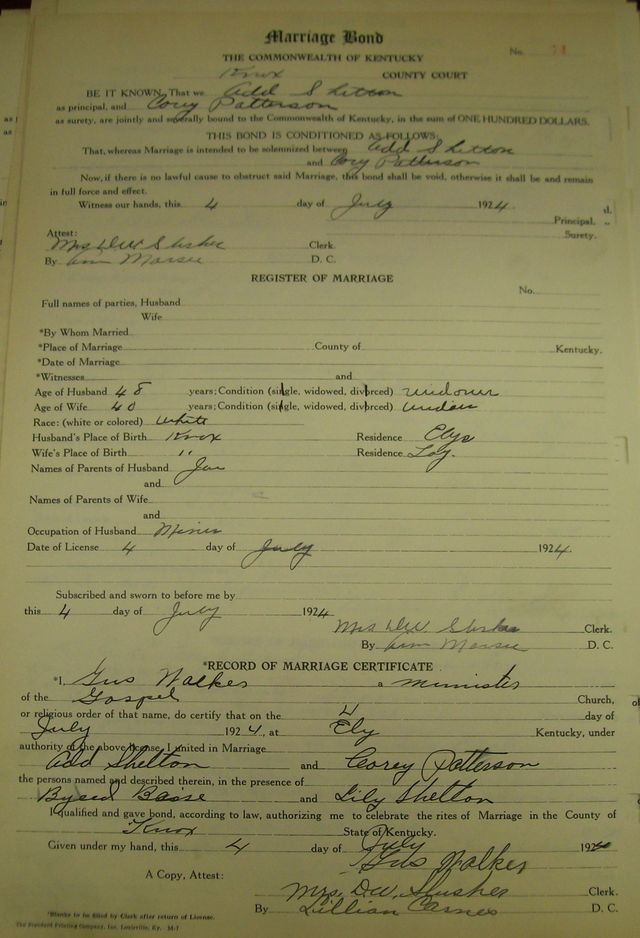 Marriage Bond
No. 71
THE COMMONWEALTH OF KENTUCKY
Knox COUNTY COURT
BE IT KNOWN, That we Add Shelton
as principal, and Corey Patterson
as surety, are jointly and severally bound to the Commonwealth of Kentucky, in the sum of ONE HUNDRED DOLLARS.
THIS BOND IS CONDITIONED AS FOLLOWS:
That, whereas Marriage is intended to be solemnized between Add Shelton
and Cory Patterson
Now, if there is no lawful cause to obstruct said Marriage, this bond shall be void, otherwise it shall be and remain
in full force and effect.
Witness our hands, this 4 day of July 1924.
Principal.
Surety.
Attest:
Mrs D.W. Slusher Clerk.
By D. C.
REGISTER OF MARRIAGE
No.
Full names of parties, Husband
Wife
*By Whom Married
*Place of Marriage County of Kentucky.
*Date of Marriage
*Witnesses and
Age of Husband 48 years; Condition (single, widowed, divorced) widower
Age of Wife 40 years; Condition (single, widowed, divorced) widow
Race: (white or colored) white
Husband's Place of Birth Knox Residence Elys
Wife's Place of Birth " Residence
Names of Parents of Husband
and
Names of Parents of Wife
and
Occupation of Husband Miner
Date of License 4 day of July 1924.
Subscribed and sworn to before me by
this 4 day of July 1924
Mrs D.W. Slusher Clerk.
By D. C.
*RECORD OF MARRIAGE CERTIFICATE
*I, Gus Walker a minister
of the Gospel Church,
or religious order of that name, do certify that on the 4 day of
July 1924, at Ely Kentucky, under
authority of the above license I united in Marriage
Add Shelton and Corey Patterson
the persons named and described therein, in the presence of
and Lily Shelton
I qualified and gave bond, according to law, authorizing me to celebrate the rites of Marriage in the County of
Knox State of Kentucky.
Given under my hand, this 4 day of July 192
Gus Walker
A Copy, Attest:
Mrs. D.W. Slusher Clerk.
By Lillian Carnes D. C.
*Blanks to be filled by Clerk after return of License.
The Standard Printing Company, Inc. Louisville, Ky.